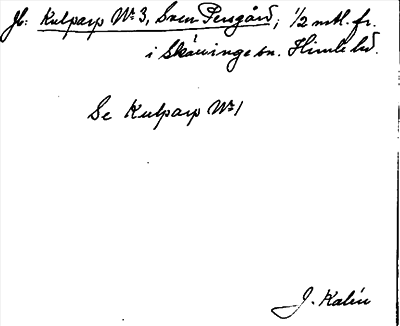 Jb: Kulparp Nr 3, Sven Persgård; 1/2 mtl. fr.
i Skällinge sn. Himle hd.
Se Kulparp Nr 1
J. Kalén